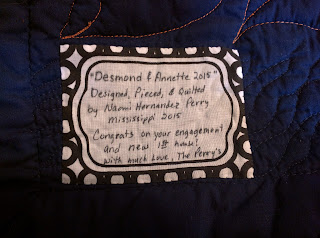 "Desmond & Annette 2015"
Designed, Pieced, & Quilted
by Naomi Hernandez Perry
Mississippi 2015
Congrats on your engagement
and new 1st home!
With much Love, The Perry's